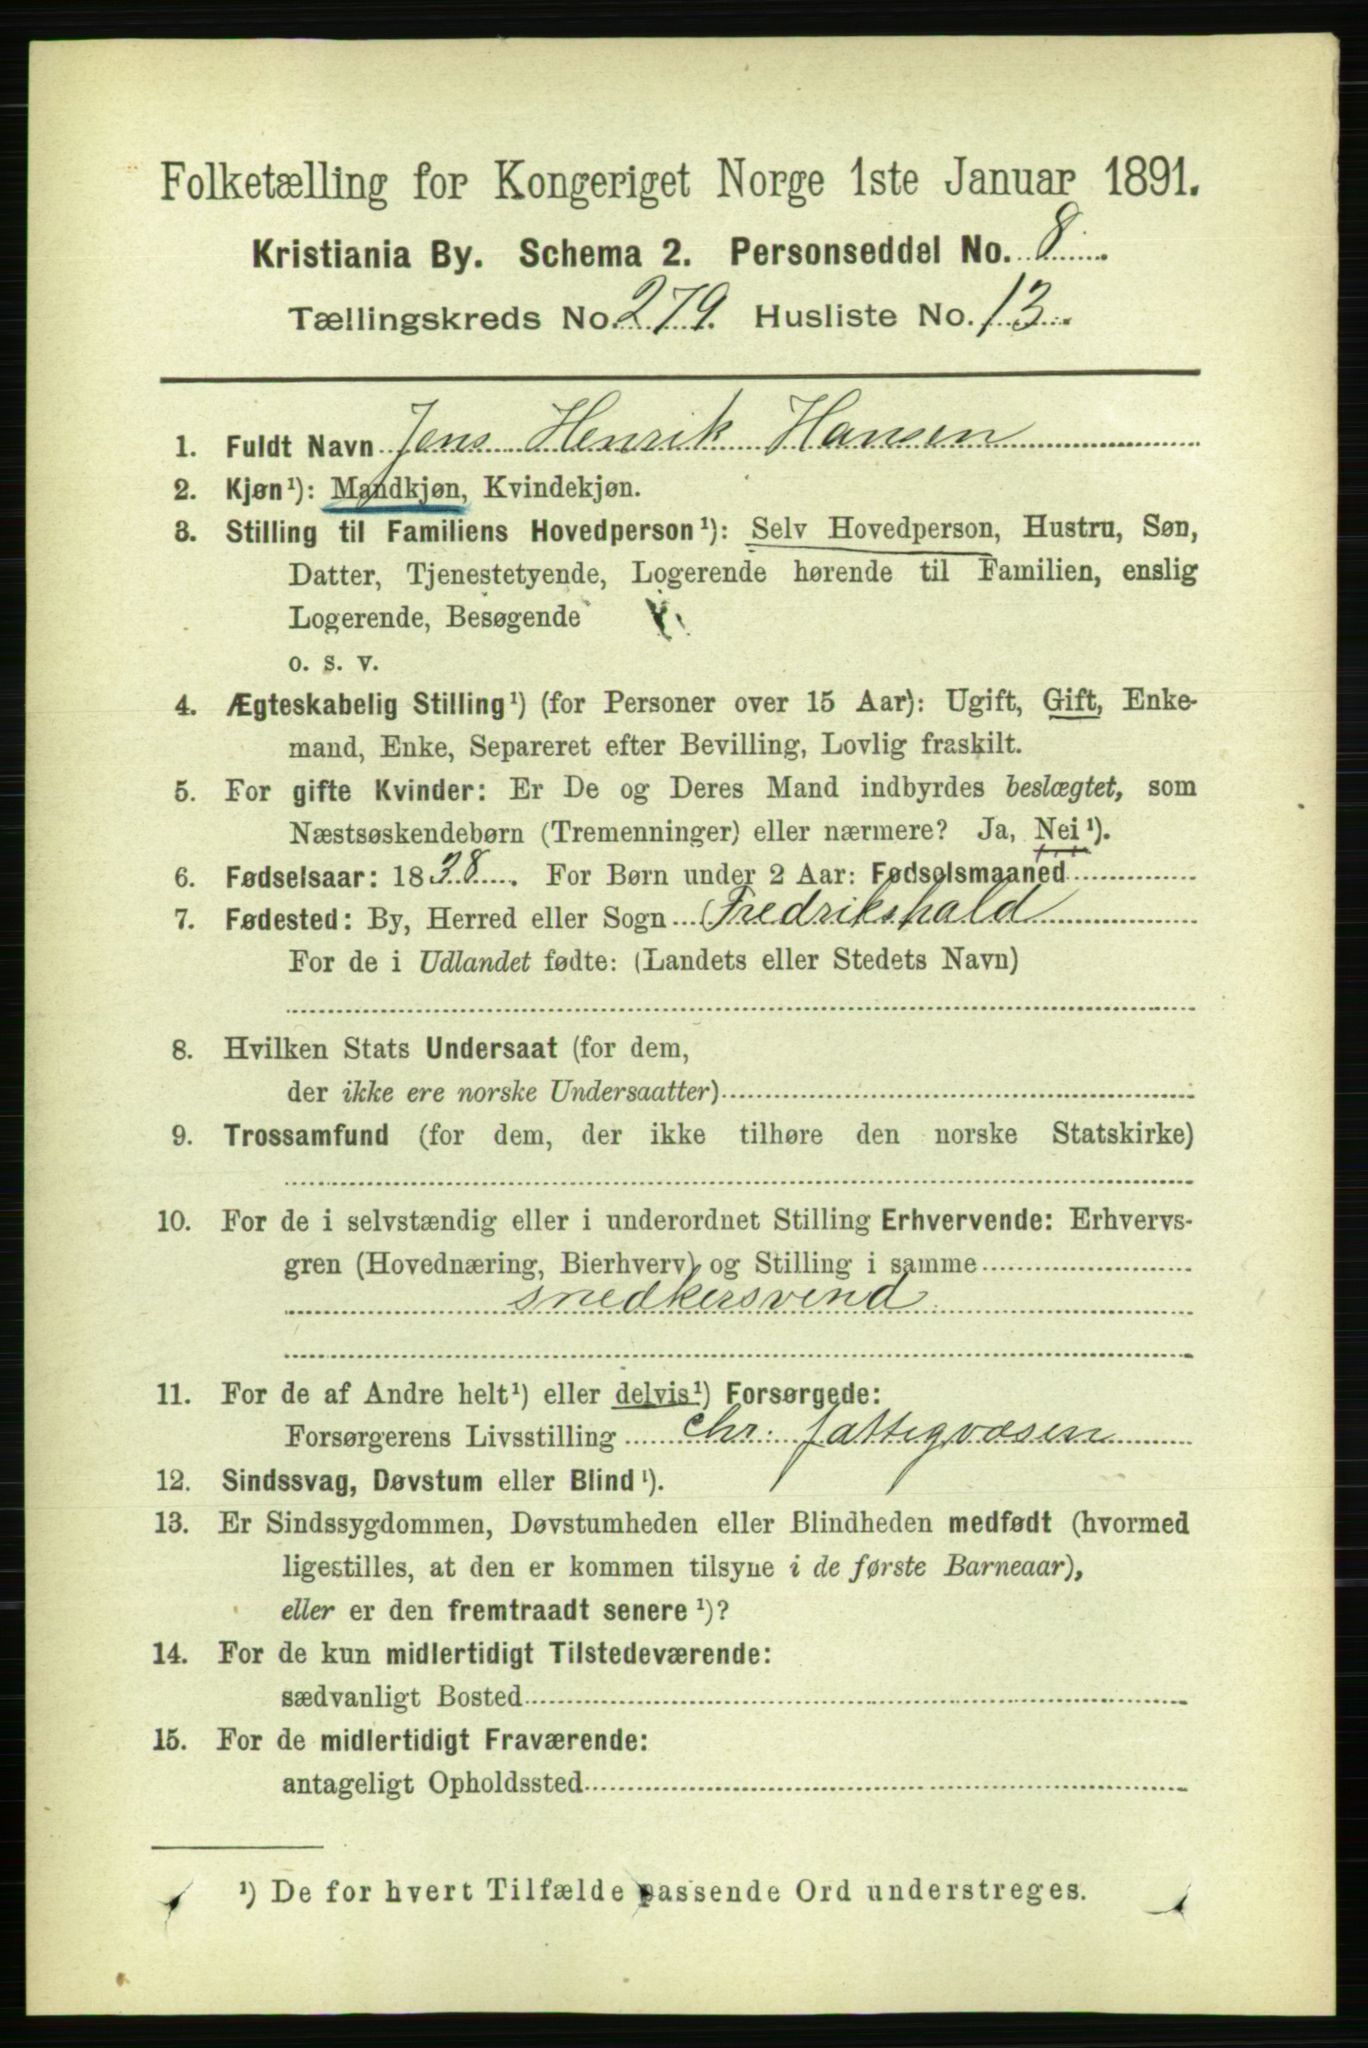 Folketælling for Kongeriget Norge 1ste Januar 1891.
Kristiania By. Schema 2. Personseddel No. 8
Tællingskreds No. 279. Husliste No. 13
1. Fuldt Navn Jens Henrik Hansen
2. Kjøn¹): Mandkjøn, Kvindekjøn.
3. Stilling til Familiens Hovedperson¹): Selv Hovedperson, Hustru, Søn,
Datter, Tjenestetyende, Logerende hørende til Familien, enslig
Logerende, Besøgende
o. s. v.
4. Ægteskabelig Stilling¹) (for Personer over 15 Aar): Ugift, Gift, Enke-
mand, Enke, Separeret efter Bevilling, Lovlig fraskilt.
5. For gifte Kvinder: Er De og Deres Mand indbyrdes beslægtet, som
Næstsøskendebørn (Tremenninger) eller nærmere? Ja, Nei¹).
6. Fødselsaar: 1838. For Børn under 2 Aar: Fødselsmaaned
7. Fødested: By, Herred eller Sogn Fredrikshald
For de i Udlandet fødte: (Landets eller Stedets Navn)
8. Hvilken Stats Undersaat (for dem,
der ikke ere norske Undersaatter)
9. Trossamfund (for dem, der ikke tilhøre den norske Statskirke)
10. For de i selvstændig eller i underordnet Stilling Erhvervende: Erhvervs-
gren (Hovednæring, Bierhverv) og Stilling i samme
snedkersvend
11. For de af Andre helt¹) eller delvis¹) Forsørgede:
Forsørgerens Livsstilling Chr. fattigvæsen
12. Sindssvag, Døvstum eller Blind¹).
13. Er Sindssygdommen, Døvstumheden eller Blindheden medfødt (hvormed
ligestilles, at den er kommen tilsyne i de første Barneaar),
eller er den fremtraadt senere¹)?
14. For de kun midlertidigt Tilstedeværende:
sædvanligt Bosted
15. For de midlertidigt Fraværende:
antageligt Opholdssted
¹) De for hvert Tilfælde passende Ord understreges.